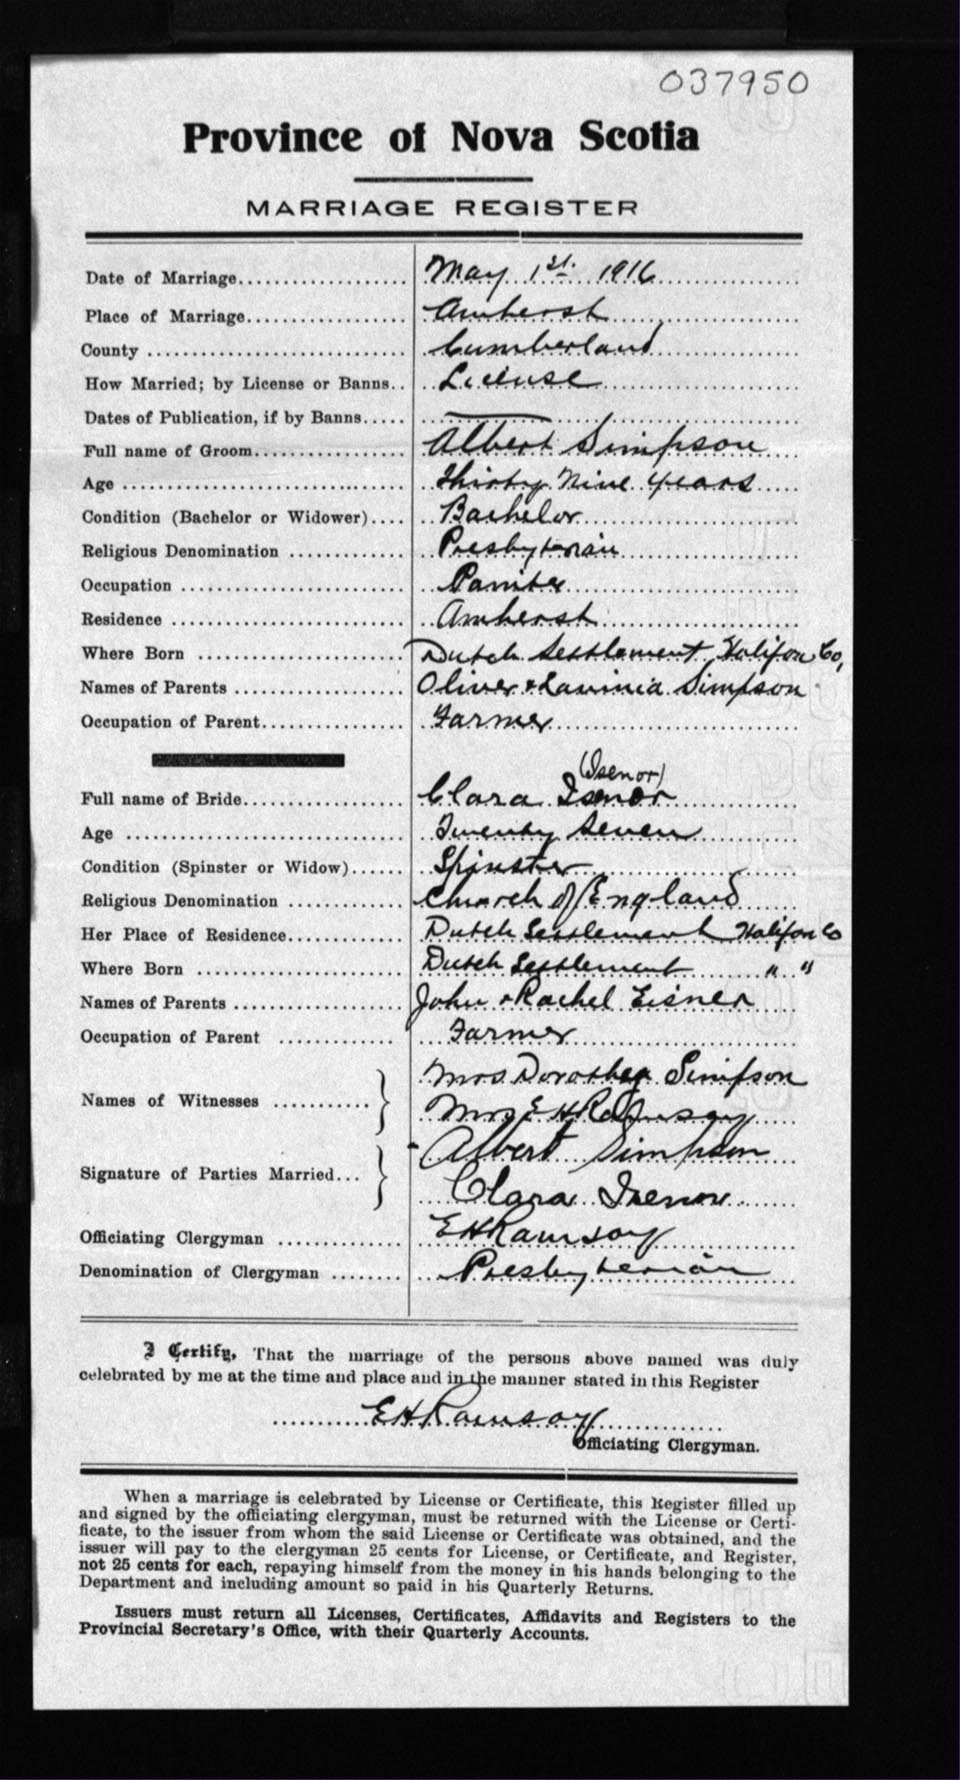 037950
Province of Nova Scotia
MARRIAGE REGISTER
Date of Marriage.................... May 1st. 1916
Place of Marriage................... Amherst
County .............................. Cumberland
How Married; by License or Banns.. License
Dates of Publication, if by Banns..... —
Full name of Groom.................. Albert Simpson
Age ................................. Thirty Nine years
Condition (Bachelor or Widower).... Bachelor
Religious Denomination ............. Presbyterian
Occupation .......................... Painter
Residence ........................... Amherst
Where Born ......................... Dutch Settlement Halifax Co,
Names of Parents .................... Oliver & Lavinia Simpson
Occupation of Parent................. Farmer
(Isenor)
Full name of Bride................... Clara Isenor
Age ................................. Twenty Seven
Condition (Spinster or Widow)...... Spinster
Religious Denomination ............. Church of England
Her Place of Residence.............. Dutch Settlement Halifax Co
Where Born ......................... Dutch Settlement " "
Names of Parents .................... John & Rachel Eisner
Occupation of Parent .............. Farmer
Mrs Dorothy Simpson
Names of Witnesses ........... Mrs E H Ramsay
Albert Simpson
Signature of Parties Married...
Clara Isenor
Officiating Clergyman .............. E H Ramsay
Denomination of Clergyman ........ Presbyterian
I Certify, That the marriage of the persons above named was duly
celebrated by me at the time and place and in the manner stated in this Register
E H Ramsay
Officiating Clergyman.
When a marriage is celebrated by License or Certificate, this Register filled up
and signed by the officiating clergyman, must be returned with the License or Certi-
ficate, to the issuer from whom the said License or Certificate was obtained, and the
issuer will pay to the clergyman 25 cents for License, or Certificate, and Register,
not 25 cents for each, repaying himself from the money in his hands belonging to the
Department and including amount so paid in his Quarterly Returns.
Issuers must return all Licenses, Certificates, Affidavits and Registers to the
Provincial Secretary's Office, with their Quarterly Accounts.